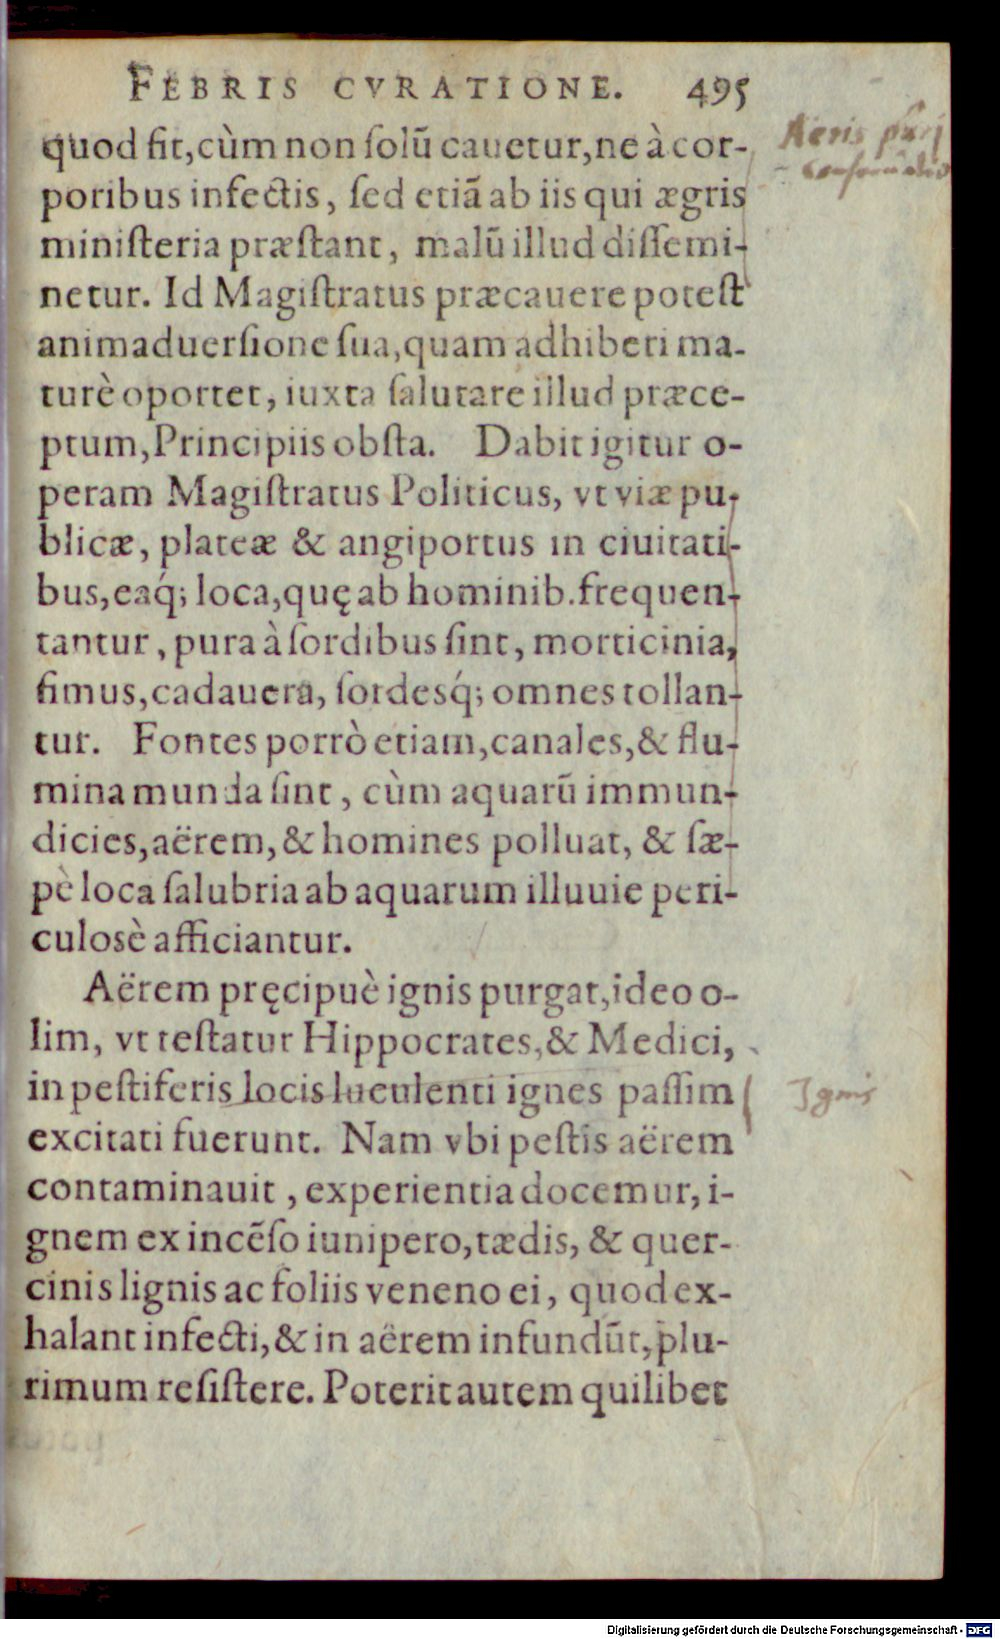 FEBRIS CVRATIONE. 495
quod fit, cùm non ſolũ cauetur, ne à cor-
poribus infectis, ſed etiã ab iis qui ægris
miniſteria præſtant, malũ illud diſſemi-
netur. Id Magiſtratus præcauere poteſt
animaduerſione ſua, quam adhiberi ma-
turè oportet, iuxta ſalutare illud præce-
ptum, Principiis obſta. Dabit igitur o-
peram Magiſtratus Politicus, vt viæ pu-
blicæ, plateæ & angiportus in ciuitati-
bus, eaq́; loca, quę ab hominib. frequen-
tantur, pura à ſordibus ſint, morticinia,
fimus, cadauera, ſordesq́; omnes tollan-
tur. Fontes porrò etiam, canales, & flu-
mina munda ſint, cùm aquarũ immun-
dicies, aërem, & homines polluat, & ſæ-
pè loca ſalubria ab aquarum illuuie peri-
culosè afficiantur.
Aërem pręcipuè ignis purgat, ideo o-
lim, vt teſtatur Hippocrates, & Medici,
in peſtiferis locis luculenti ignes paſſim
excitati fuerunt. Nam vbi peſtis aërem
contaminauit, experientia docemur, i-
gnem ex incẽſo iunipero, tædis, & quer-
cinis lignis ac foliis veneno ei, quod ex-
halant infecti, & in aërem infundũt, plu-
rimum reſiſtere. Poterit autem quilibet
Aeris puri
Ignis
Digitalisierung gefördert durch die Deutsche Forschungsgemeinschaft - DFG